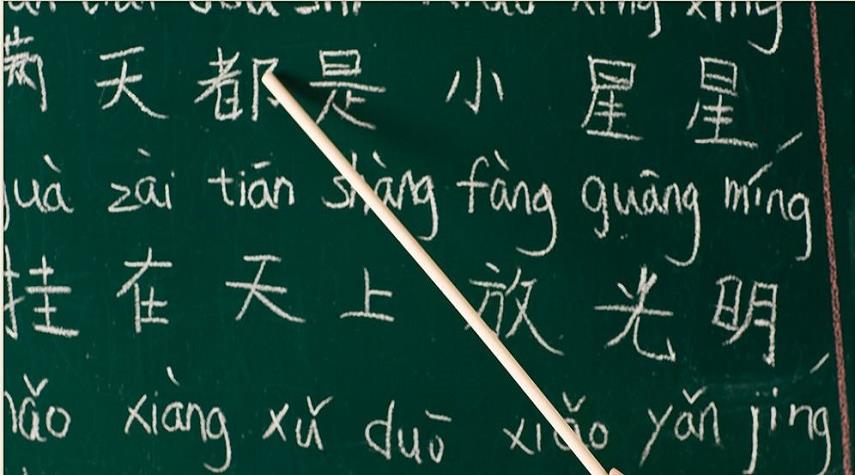 xing xing
满 天 都 是 小 星 星
guà zài tiān shàng fàng guāng míng
挂 在 天 上 放 光 明
hǎo xiàng xǔ duō xiǎo yǎn jíng